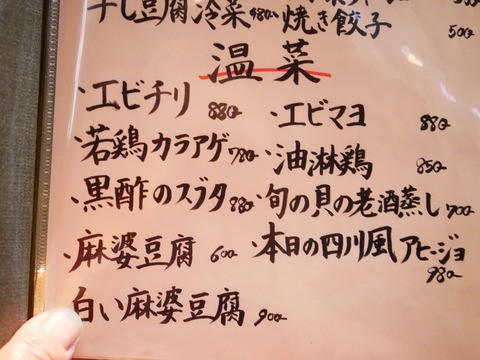 干し豆腐冷菜 480- 焼き餃子 500-
温菜
・エビチリ 880-
・エビマヨ 880-
・若鶏カラアゲ 780-
・油淋鶏 850-
・黒酢のスブタ 880-
・旬の貝の老酒蒸し 700-
・麻婆豆腐 600-
・本日の四川風アヒージョ 980-
白い麻婆豆腐 900-